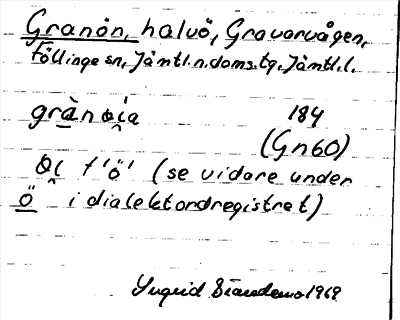 Granön, halvö, Gravarvågen,
Föllinge sn, Jämtl.n.doms.tg, Jämtl.l.
184
(Gn60)
f 'ö' (se vidare under
ö i dialektordregistret)
Ingrid 1969